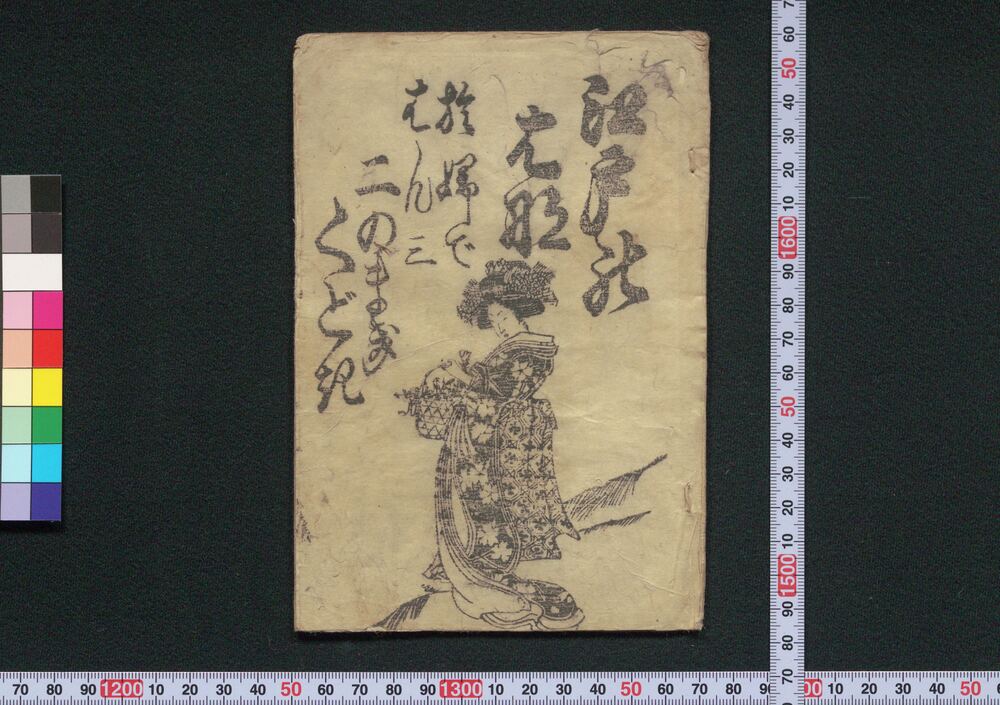 江戸の
はな
於婦で
はん三
二のまき
くどき
70 80 90 1200 10 20 30 40 50 60 70 80 90 1300 10 20 30 40 50 60 70 80 90 00 10 20 30 40 50 6
7 60 50 40 30 20 10 1600 90 80 70 60 50 40 30 20 10 1500 90 80 70